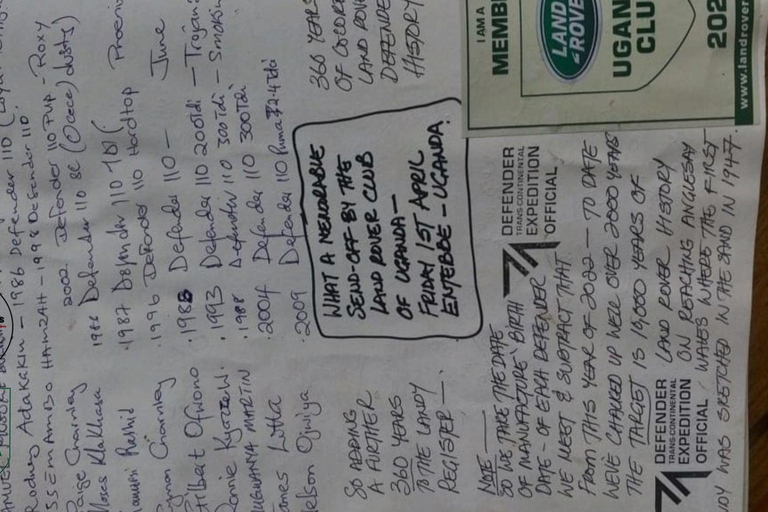 Rodney Adakakin - 1986 Defender 110
SSEMAMBO HAMZAH - 1998 Defender 110
2002 Defender 110 PUP - Roxy
Paige Charnley
1986 Defender 110 SC (Ocece) dusty)
Moses
1987 Defender 110 TDI (
Rashid
1996 Defender 110 Hardtop Phoenix
Symon Charnley
Gilbert Ofwono
· 1983 Defender 110 - June
Ronnie
· 1993 Defender 110 200Tdi - Trojan
MARTIN
· 1988 Defender 110 300Tdi - Smokin
James
· 2004 Defender 110 300Tdi
Nelson
· 2009 Defender 110 Puma 2.4Tdi
360 YEARS
OF COLORED
LAND ROVER
DEFENDER
HISTORY
WHAT A MEMORABLE
SEND-OFF BY THE
LAND ROVER CLUB
OF UGANDA -
FRIDAY 1ST APRIL
ENTEBBE - UGANDA.
SO ADDING
A FURTHER
360 YEARS
TO THE LANDY
REGISTER -
NOTE
SO WE TAKE THE DATE
OF MANUFACTURE 'BIRTH
DATE - OF EACH DEFENDER
WE MEET & SUBTRACT THAT
FROM THIS YEAR OF 2022 - TO DATE
WE'VE CHALKED UP WELL OVER 2000 YEARS
THE TARGET IS 14,000 YEARS OF
LAND ROVER HISTORY
ON REACHING ANGLESAY
WALES WHERE THE FIRST
WAS SKETCHED IN THE SAND IN 1947.
DEFENDER
TRANS-CONTINENTAL
EXPEDITION
OFFICIAL
DEFENDER
TRANS-CONTINENTAL
EXPEDITION
OFFICIAL
I AM A
MEMB
LAND
ROVER
UGAN
CLU
202
www.landrover